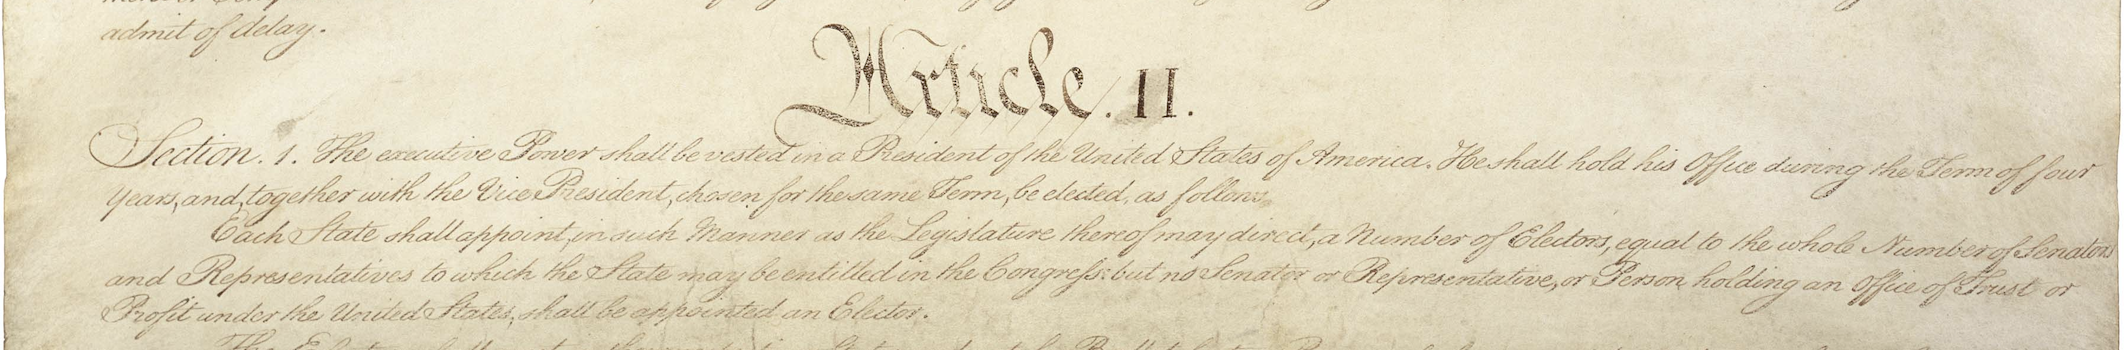 admit of delay.
Article. II.
Section. 1. The executive Power shall be vested in a President of the United States of America. He shall hold his Office during the Term of four
Years, and, together with the Vice President, chosen for the same Term, be elected, as follows
Each State shall appoint, in such Manner as the Legislature thereof may direct, a Number of Electors, equal to the whole Number of Senators
and Representatives to which the State may be entitled in the Congreſs: but no Senator or Representative, or Person holding an Office of Trust or
Profit under the United States, shall be appointed an Elector.